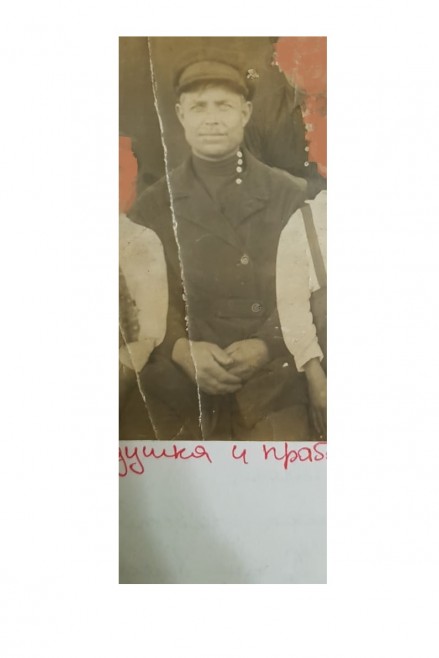 душка и праб